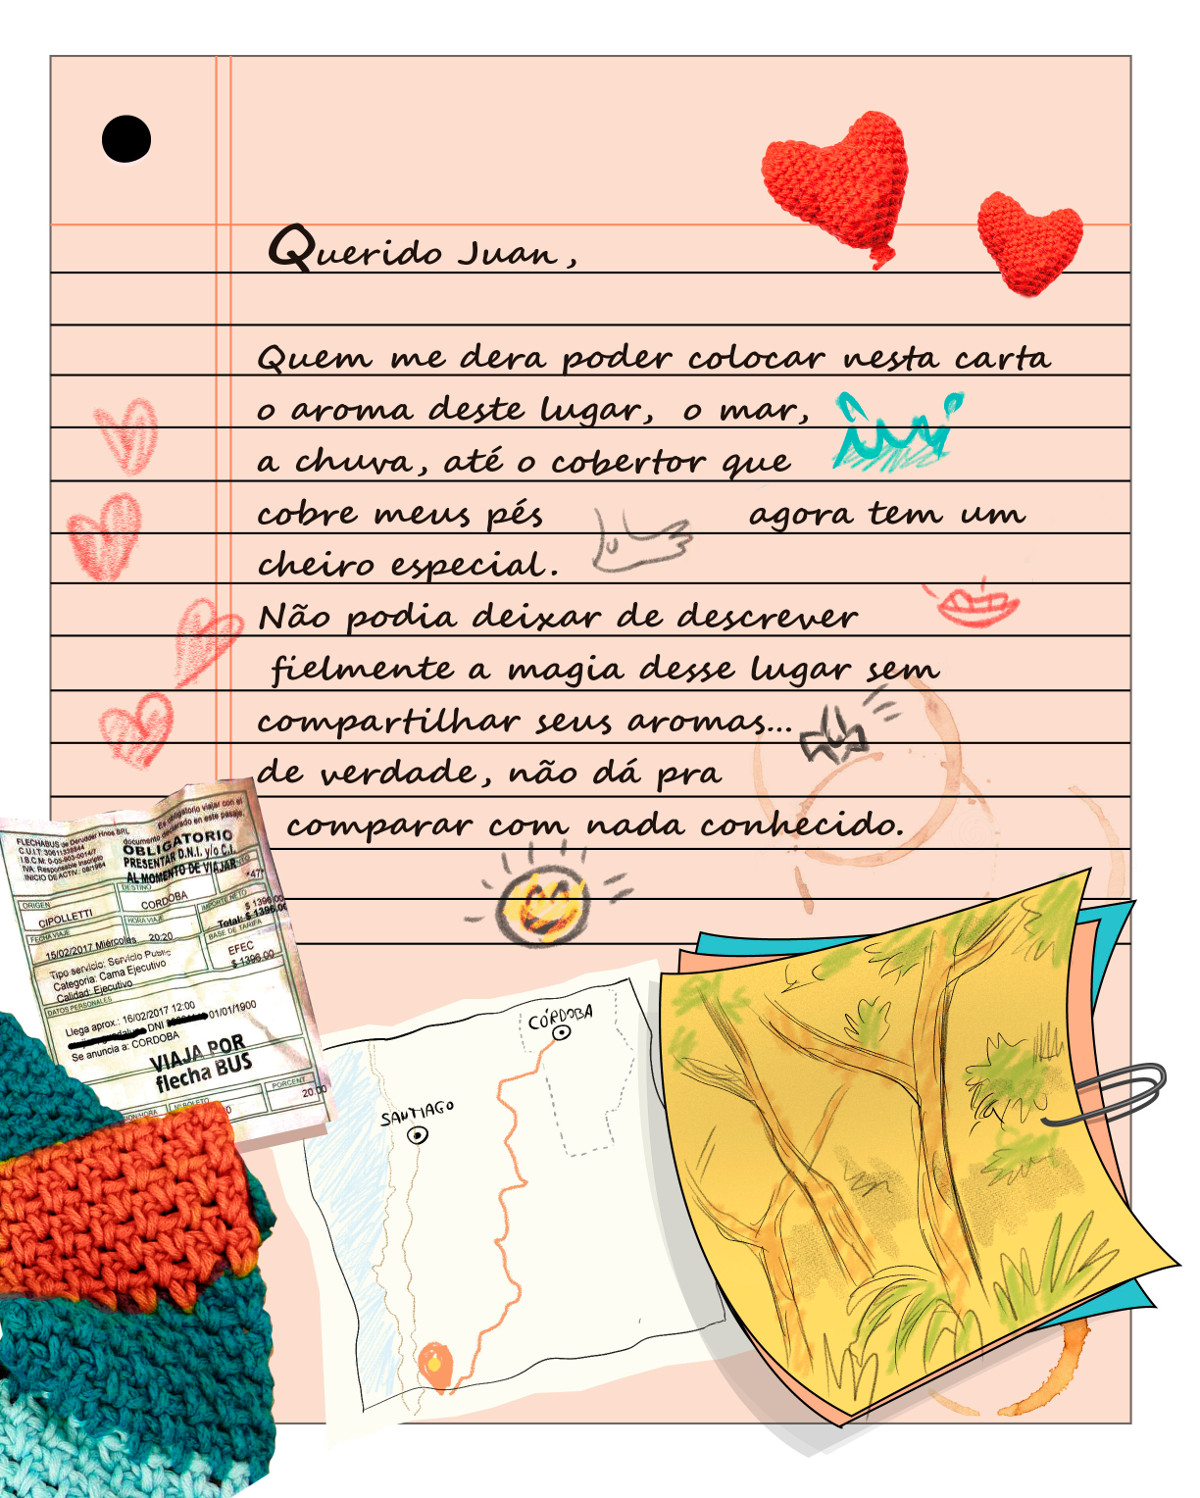 Querido Juan,
Quem me dera poder colocar nesta carta
o aroma deste lugar, o mar,
a chuva, até o cobertor que
cobre meus pés agora tem um
cheiro especial.
Não podia deixar de descrever
fielmente a magia desse lugar sem
compartilhar seus aromas...
de verdade, não dá pra
comparar com nada conhecido.
FLECHABUS de Derudder Hnos SRL
IVA: Responsable Inscripto
INICIO DE ACTIV.: 08/1984
Es obligatorio viajar con el
documento declarado en este pasaje.
OBLIGATORIO
PRESENTAR D.N.I. y/o C.I.
AL MOMENTO DE VIAJAR
*47*
ORIGEN
CIPOLLETTI
DESTINO
CORDOBA
IMPORTE NETO
$ 1396.00
Total: $ 1396.00
FECHA VIAJE
15/02/2017 Miércoles
HORA VIAJE
20:20
BASE DE TARIFA
EFEC
$ 1396.00
Tipo servicio: Servicio Public
Categoria: Cama Ejecutivo
Calidad: Ejecutivo
DATOS PERSONALES
Llega aprox.: 16/02/2017 12:00
DNI 01/01/1900
Se anuncia a: CORDOBA
VIAJA POR
flecha BUS
Nº BOLETO
PORCENT
20.00
CÓRDOBA
SANTIAGO